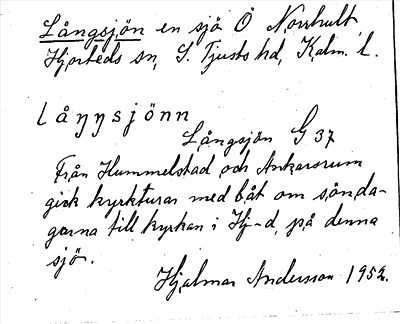 Långsjön en sjö Ö Norrhult
Hjorteds sn, S. Tjusts hd, Kalm. l.
låŋŋsjönn
Långsjön G 37
Från Hummelstad och Ankarsrum
gick kyrkturar med båt om sönda-
garna till kyrkan i Hj-d, på denna
sjö.
Hjalmar Andersson 1952.